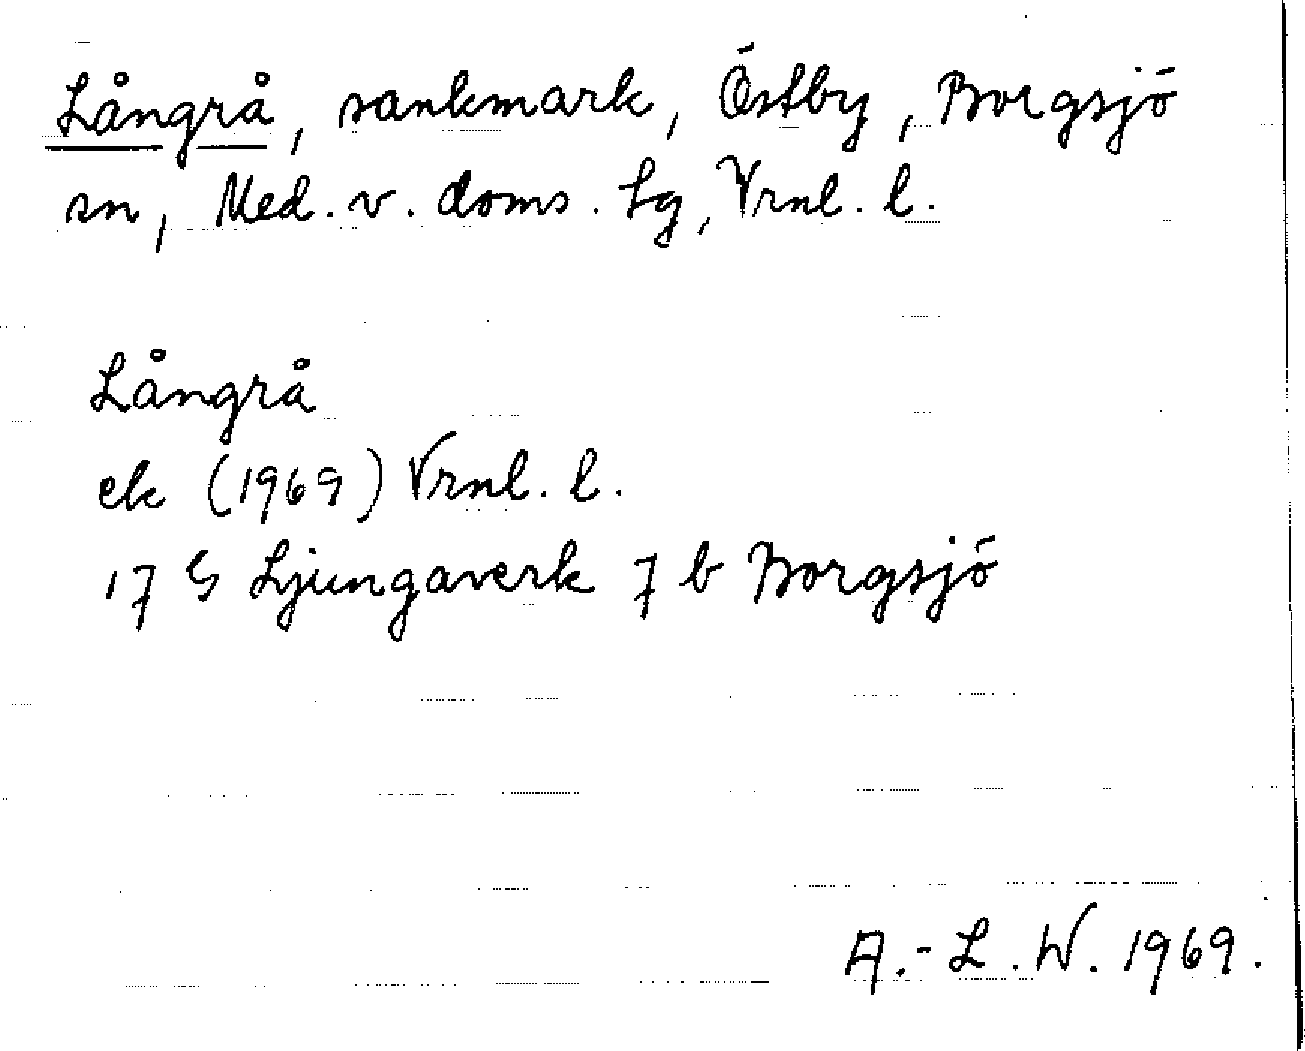 Långrå, sankmark, Östby, Borgsjö
sn, Med. v. doms. lg, Vrnl. l.
Långrå
ek (1969) Vrnl. l.
17 G Ljungaverk 7 b Borgsjö
A.-L. W. 1969.